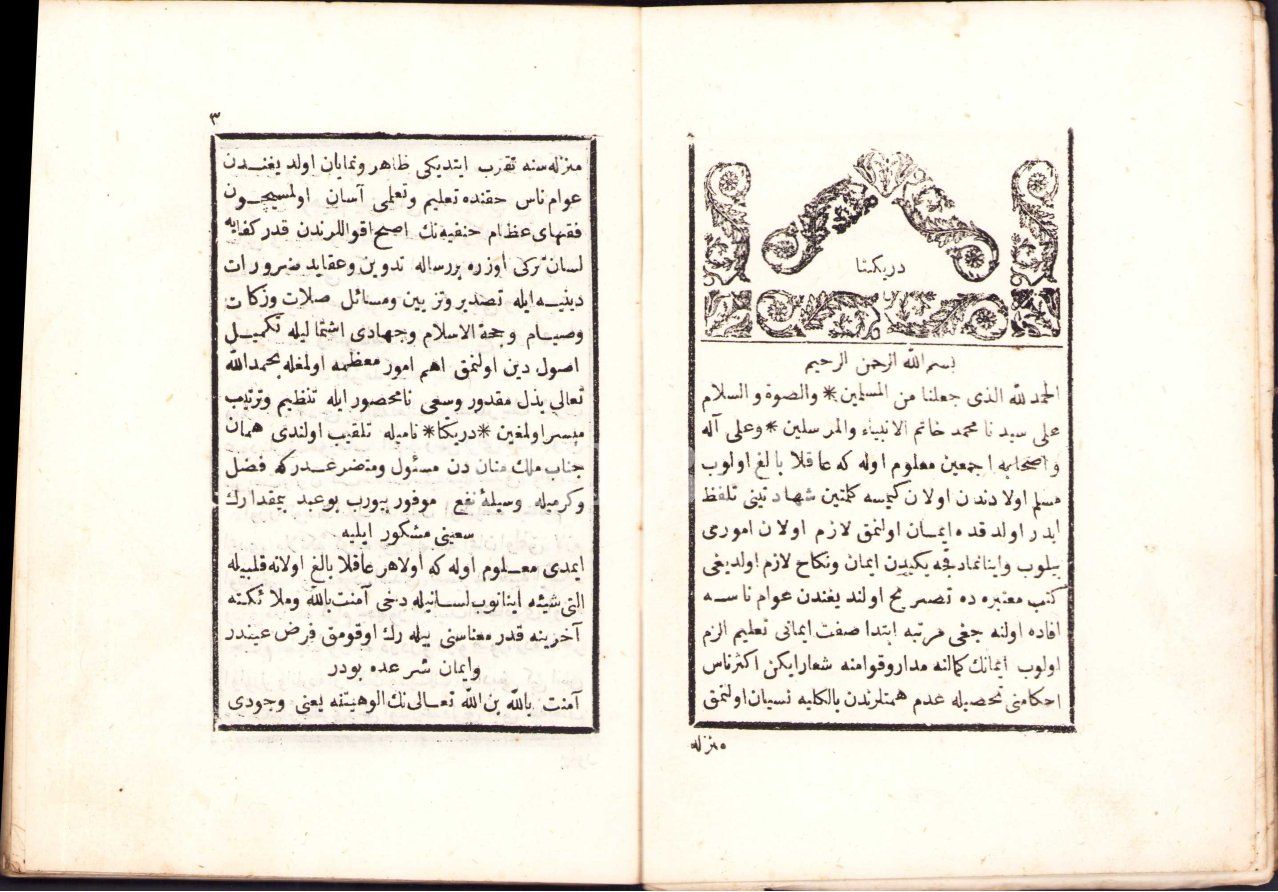 دریکتا
بسم الله الرحمن الرحیم
الحمد لله الذی جعلنا من المسلمین * والصوة والسلام
علی سیدنا محمد خاتم الانبیاء والمرسلین * وعلی آله
واصحابه اجمعین معلوم اوله که عاقلا بالغ اولوب
مسلم اولادندن اولان کیمسه کلمتین شهادتینی تلفظ
ایدر اولدقده ایمان اولنمق لازم اولان اموری
بیلوب واینانمادقجه یکیدن ایمان ونکاح لازم اولدیغی
کتب معتبره ده تصریح اولندیغندن عوام ناسه
افاده اولنه جغی مرتبه ابتدا صفت ایمانی تعلیم الزم
اولوب ایمانك کمالنه مدار وقوامنه شعار ایکن اکثر ناس
احکامنی تحصیله عدم همتلرندن بالکلیه نسیان اولنمق
منزله
٣
منزله سنه تقرب ایتدیکی ظاهر ونمایان اولدیغندن
عوام ناس حقنده تعلیم وتعلمی آسان اولمسیچون
فقهای عظام حنفیه نك اصح اقواللرندن قدر کفایه
لسان ترکی اوزره بر رساله تدوین وعقاید ضرورات
دینیه ایله تصدیر وتزیین ومسائل صلات وزکات
وصیام وحجة الاسلام وجهادی اشتمالیله تکمیل
اصول دین اولنمق اهم امور معظمه اولمغله بحمد الله
تعالی بذل مقدور وسعی نامحصور ایله تنظیم وترتیب
میسر اولمغین * دریکتا * نامیله تلقیب اولندی همان
جناب ملك منان دن مسئول ومتضرعدر که فضل
وکرمیله وسیلۀ نفع موفور بیورب بو عبد بیمقدارك
سعینی مشکور ایلیه
ایمدی معلوم اوله که اولا هر عاقلا بالغ اولانه قلبیله
التی شیئه اینانوب لسانیله دخی آمنت بالله وملائکته
آخرینه قدر معناسنی بیله رك اوقومق فرض عیندر
وایمان شرعده بودر
آمنت بالله بن الله تعالی نك الوهیتنه یعنی وجودی